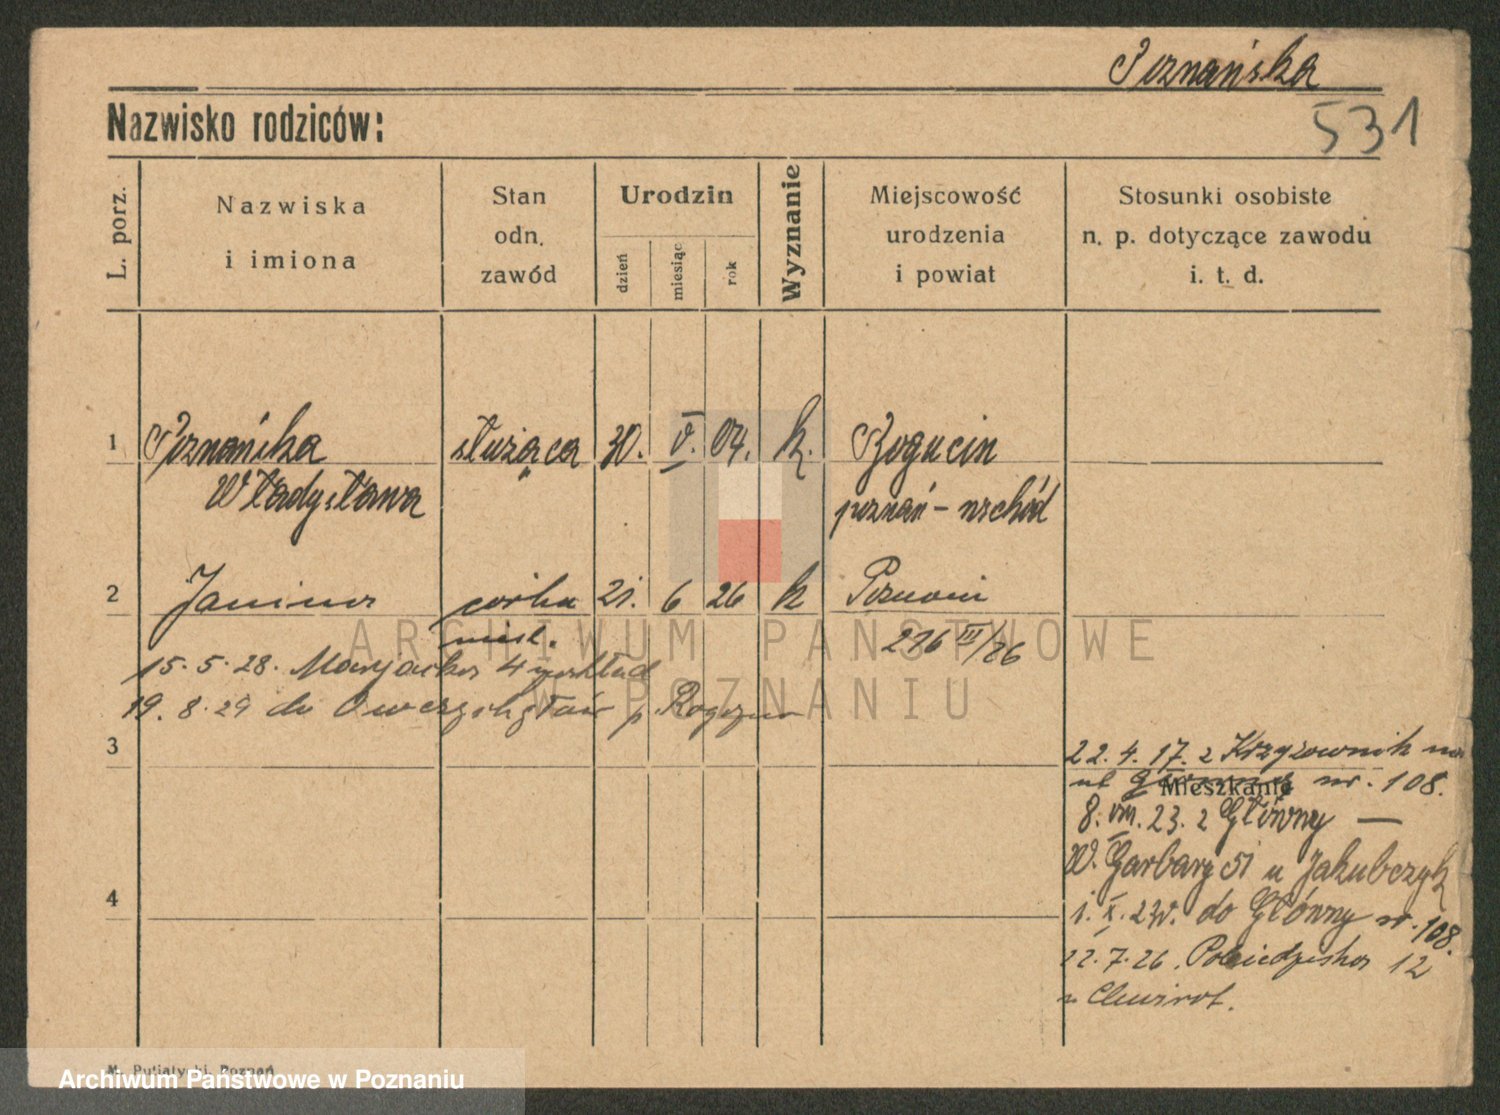 Poznańska
Nazwisko rodziców:
531
L. porz.
Nazwiska
i imiona
Stan
odn.
zawód
Urodzin
dzień
miesiąc
rok
Wyznanie
Miejscowość
urodzenia
i powiat
Stosunki osobiste
n. p. dotyczące zawodu
i. t. d.
1 Poznańska służąca 30. V. 04. k. Bogucin
Władysława poznań - wschód
2 Janina córka 21. 6 26 k Poznań
nieśl. 216 III/26
ARCHIWUM PAŃSTWOWE
W POZNANIU
15.5.28. 4
19.8.29 do p. Rogoźno
3
22.4.17. z Krzyżownik na
ul nr. 108.
Mieszkanie
8. VIII. 23. z Główny —
W. Garbary 51 u Jakubczyk
4
1. X. 23 do Główny nr. 108.
22.7.26. 12
u
M. Putiatycki, Poznań
Archiwum Państwowe w Poznaniu